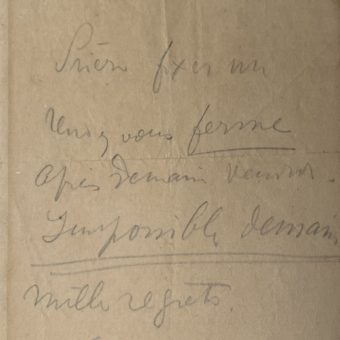 Prière fixer un
rendez vous ferme
après demain
Impossible demain
mille regrets.